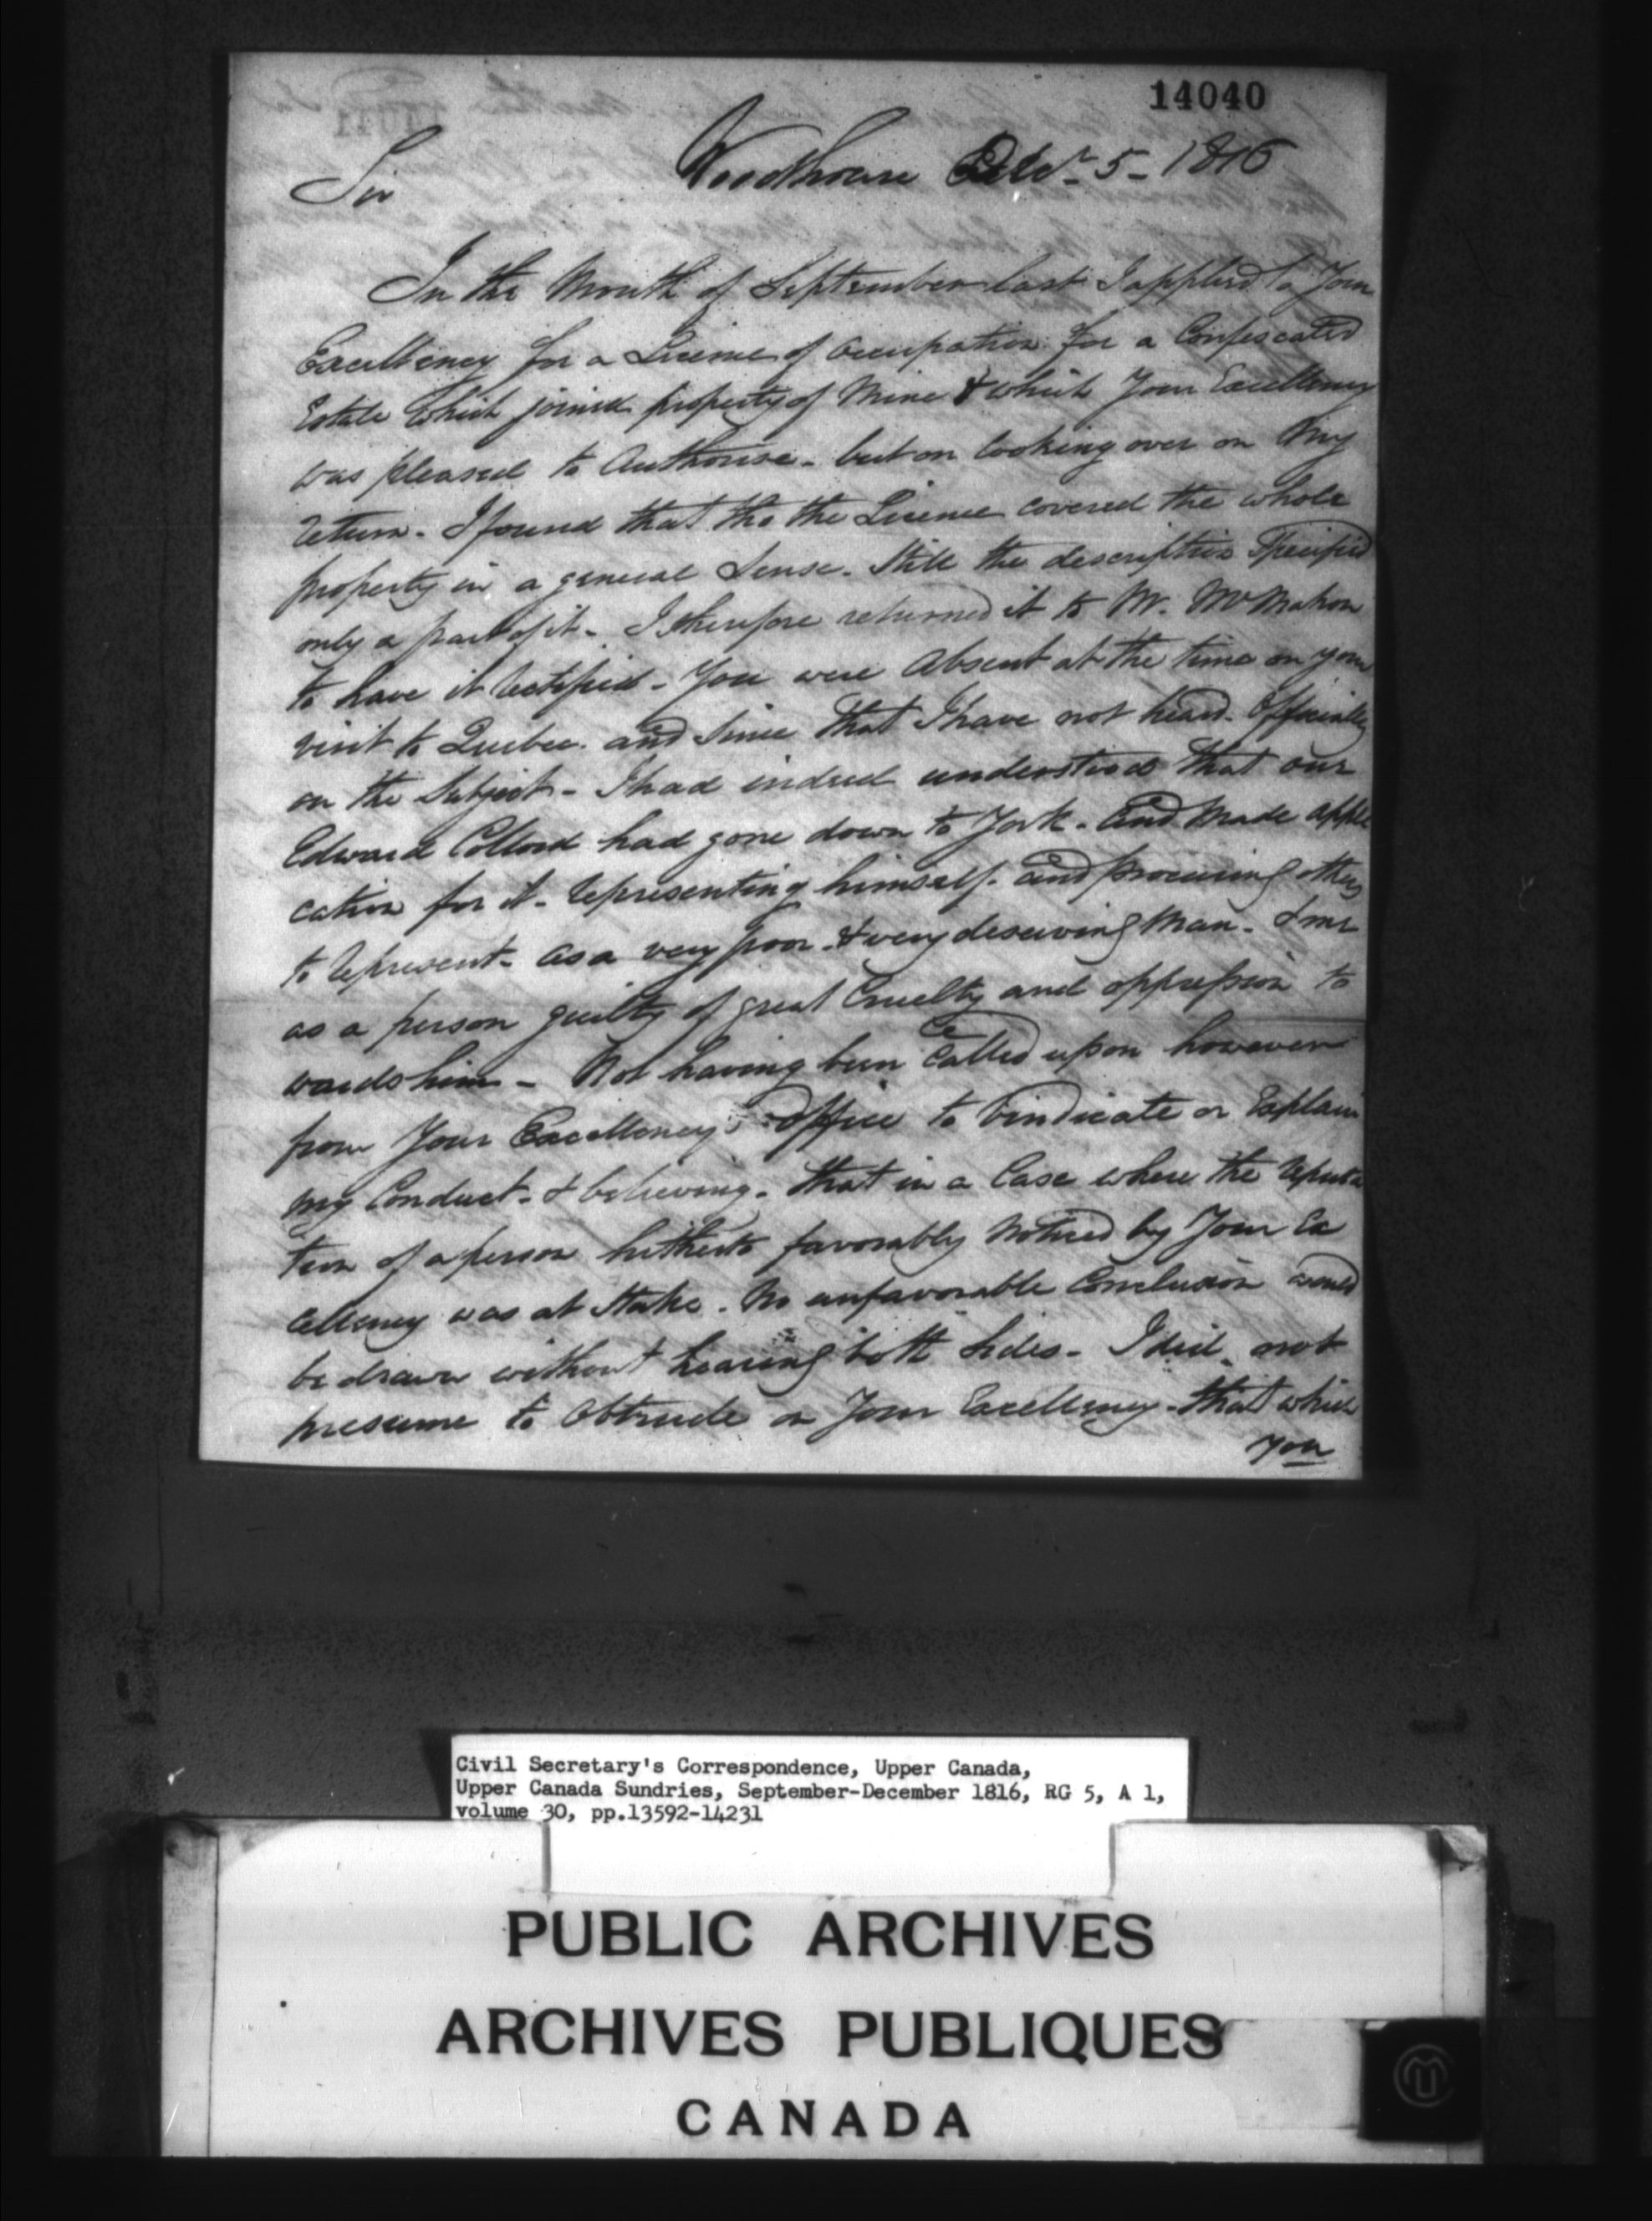 14040
Woodhouse Decr. 5 - 1816
Sir
In the Month of September last I applied to Your
Excellency for a License of Occupation for a Confescated
Estate which joined property of Mine & which Your Excellency
was pleased to Authorise - but on looking over on My
return - I found that tho the License covered the whole
property in a general Sense - Still the description Specified
only a part of it - I therefore returned it to Mr. McMahon
to have it rectified - You were Absent at the time on your
visit to Quebec. and since that I have not heard Officially
on the Subject - I had indeed understood that our
Edward Collord had gone down to York - and Made appli
cation for it - representing himself - and procuring others
to represent - as a very poor - & very deserving Man - & me
as a person guilty of great Cruelty and oppression to
wards him - Not having been Called upon however
from Your Excellency's Office to Vindicate or Explain
my Conduct - & believing - that in a Case where the reputa
tion of a person hitherto favorably Noticed by Your Ex
cellency was at Stake - No unfavorable Conclusion would
be drawn without hearing both Sides - I did not
presume to Obtrude on Your Excellency - that which
you
Civil Secretary's Correspondence, Upper Canada,
Upper Canada Sundries, September-December 1816, RG 5, A 1,
volume 30, pp.13592-14231
PUBLIC ARCHIVES
ARCHIVES PUBLIQUES
CANADA